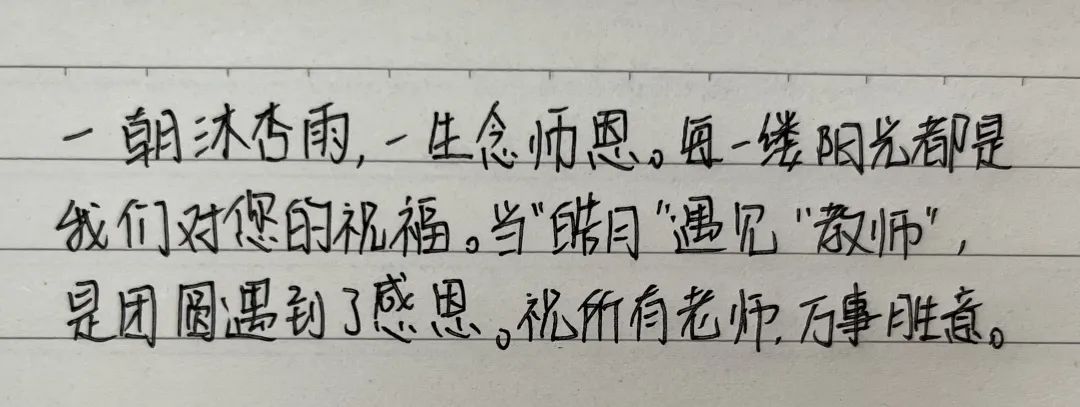 一朝沐杏雨,一生念师恩。每一缕阳光都是
我们对您的祝福。当"皓月"遇见"教师",
是团圆遇到了感恩。祝所有老师,万事胜意。